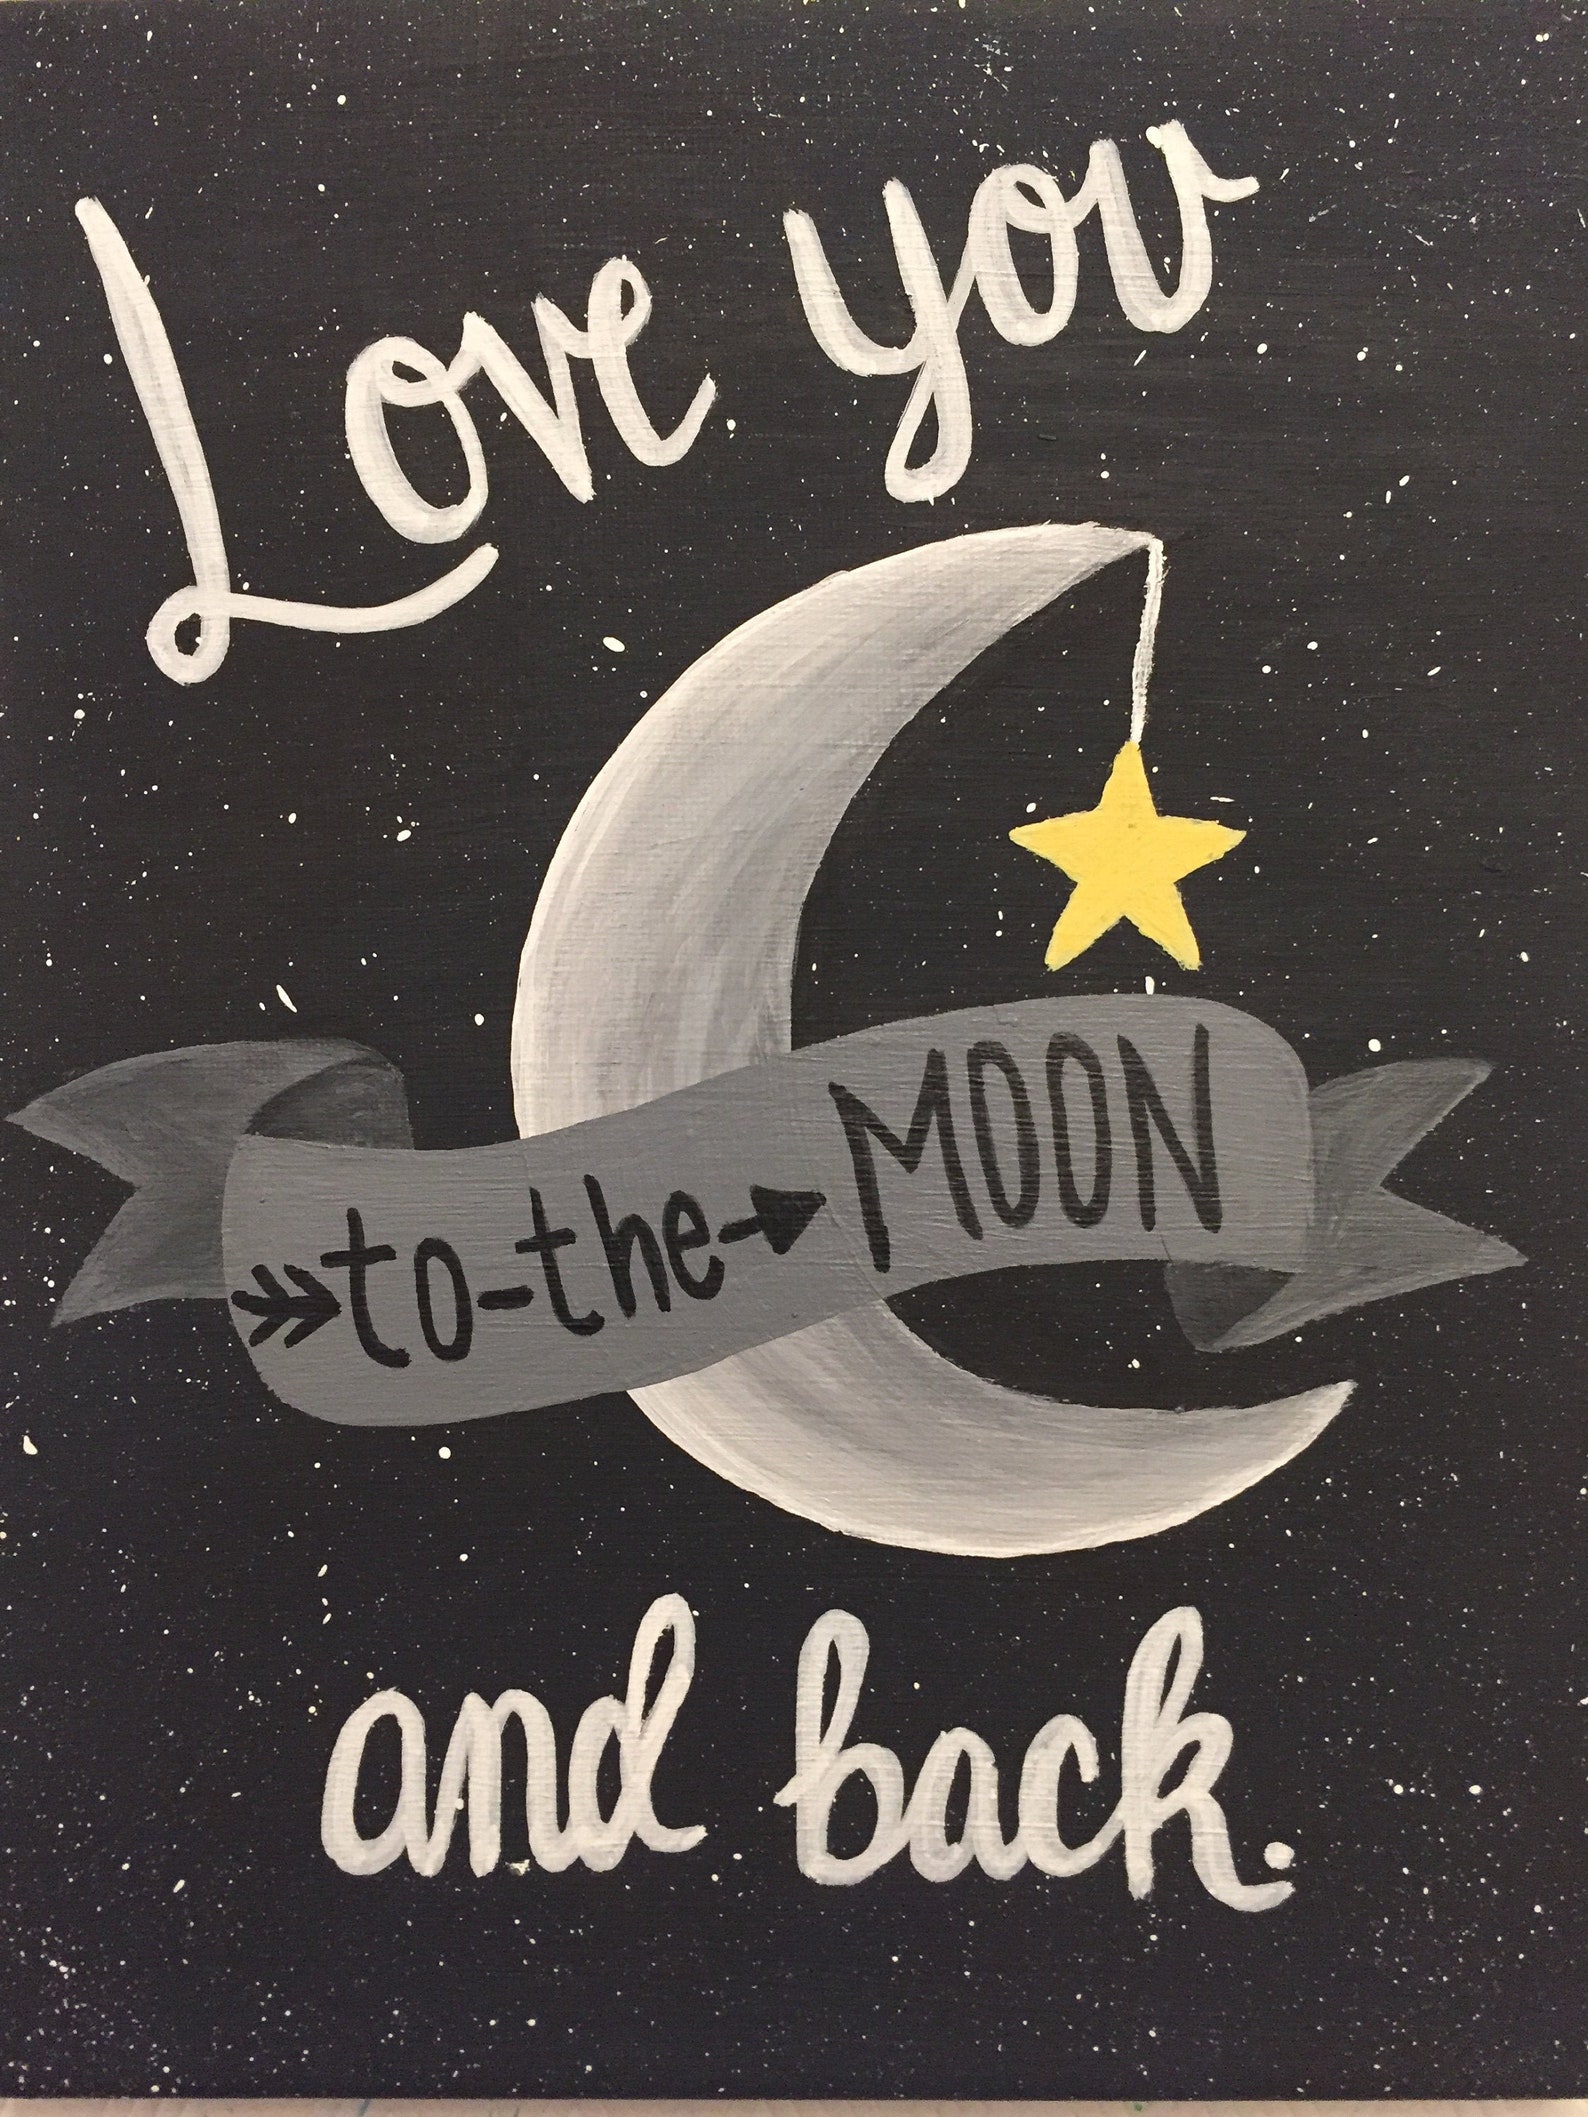 Love you
to-the
MOON
and back.